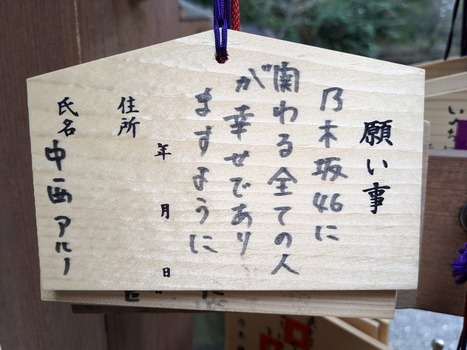 願い事
乃木坂46に
関わる全ての人
が幸せであり
ますように
年 月 日
住所
氏名 中西アルノ